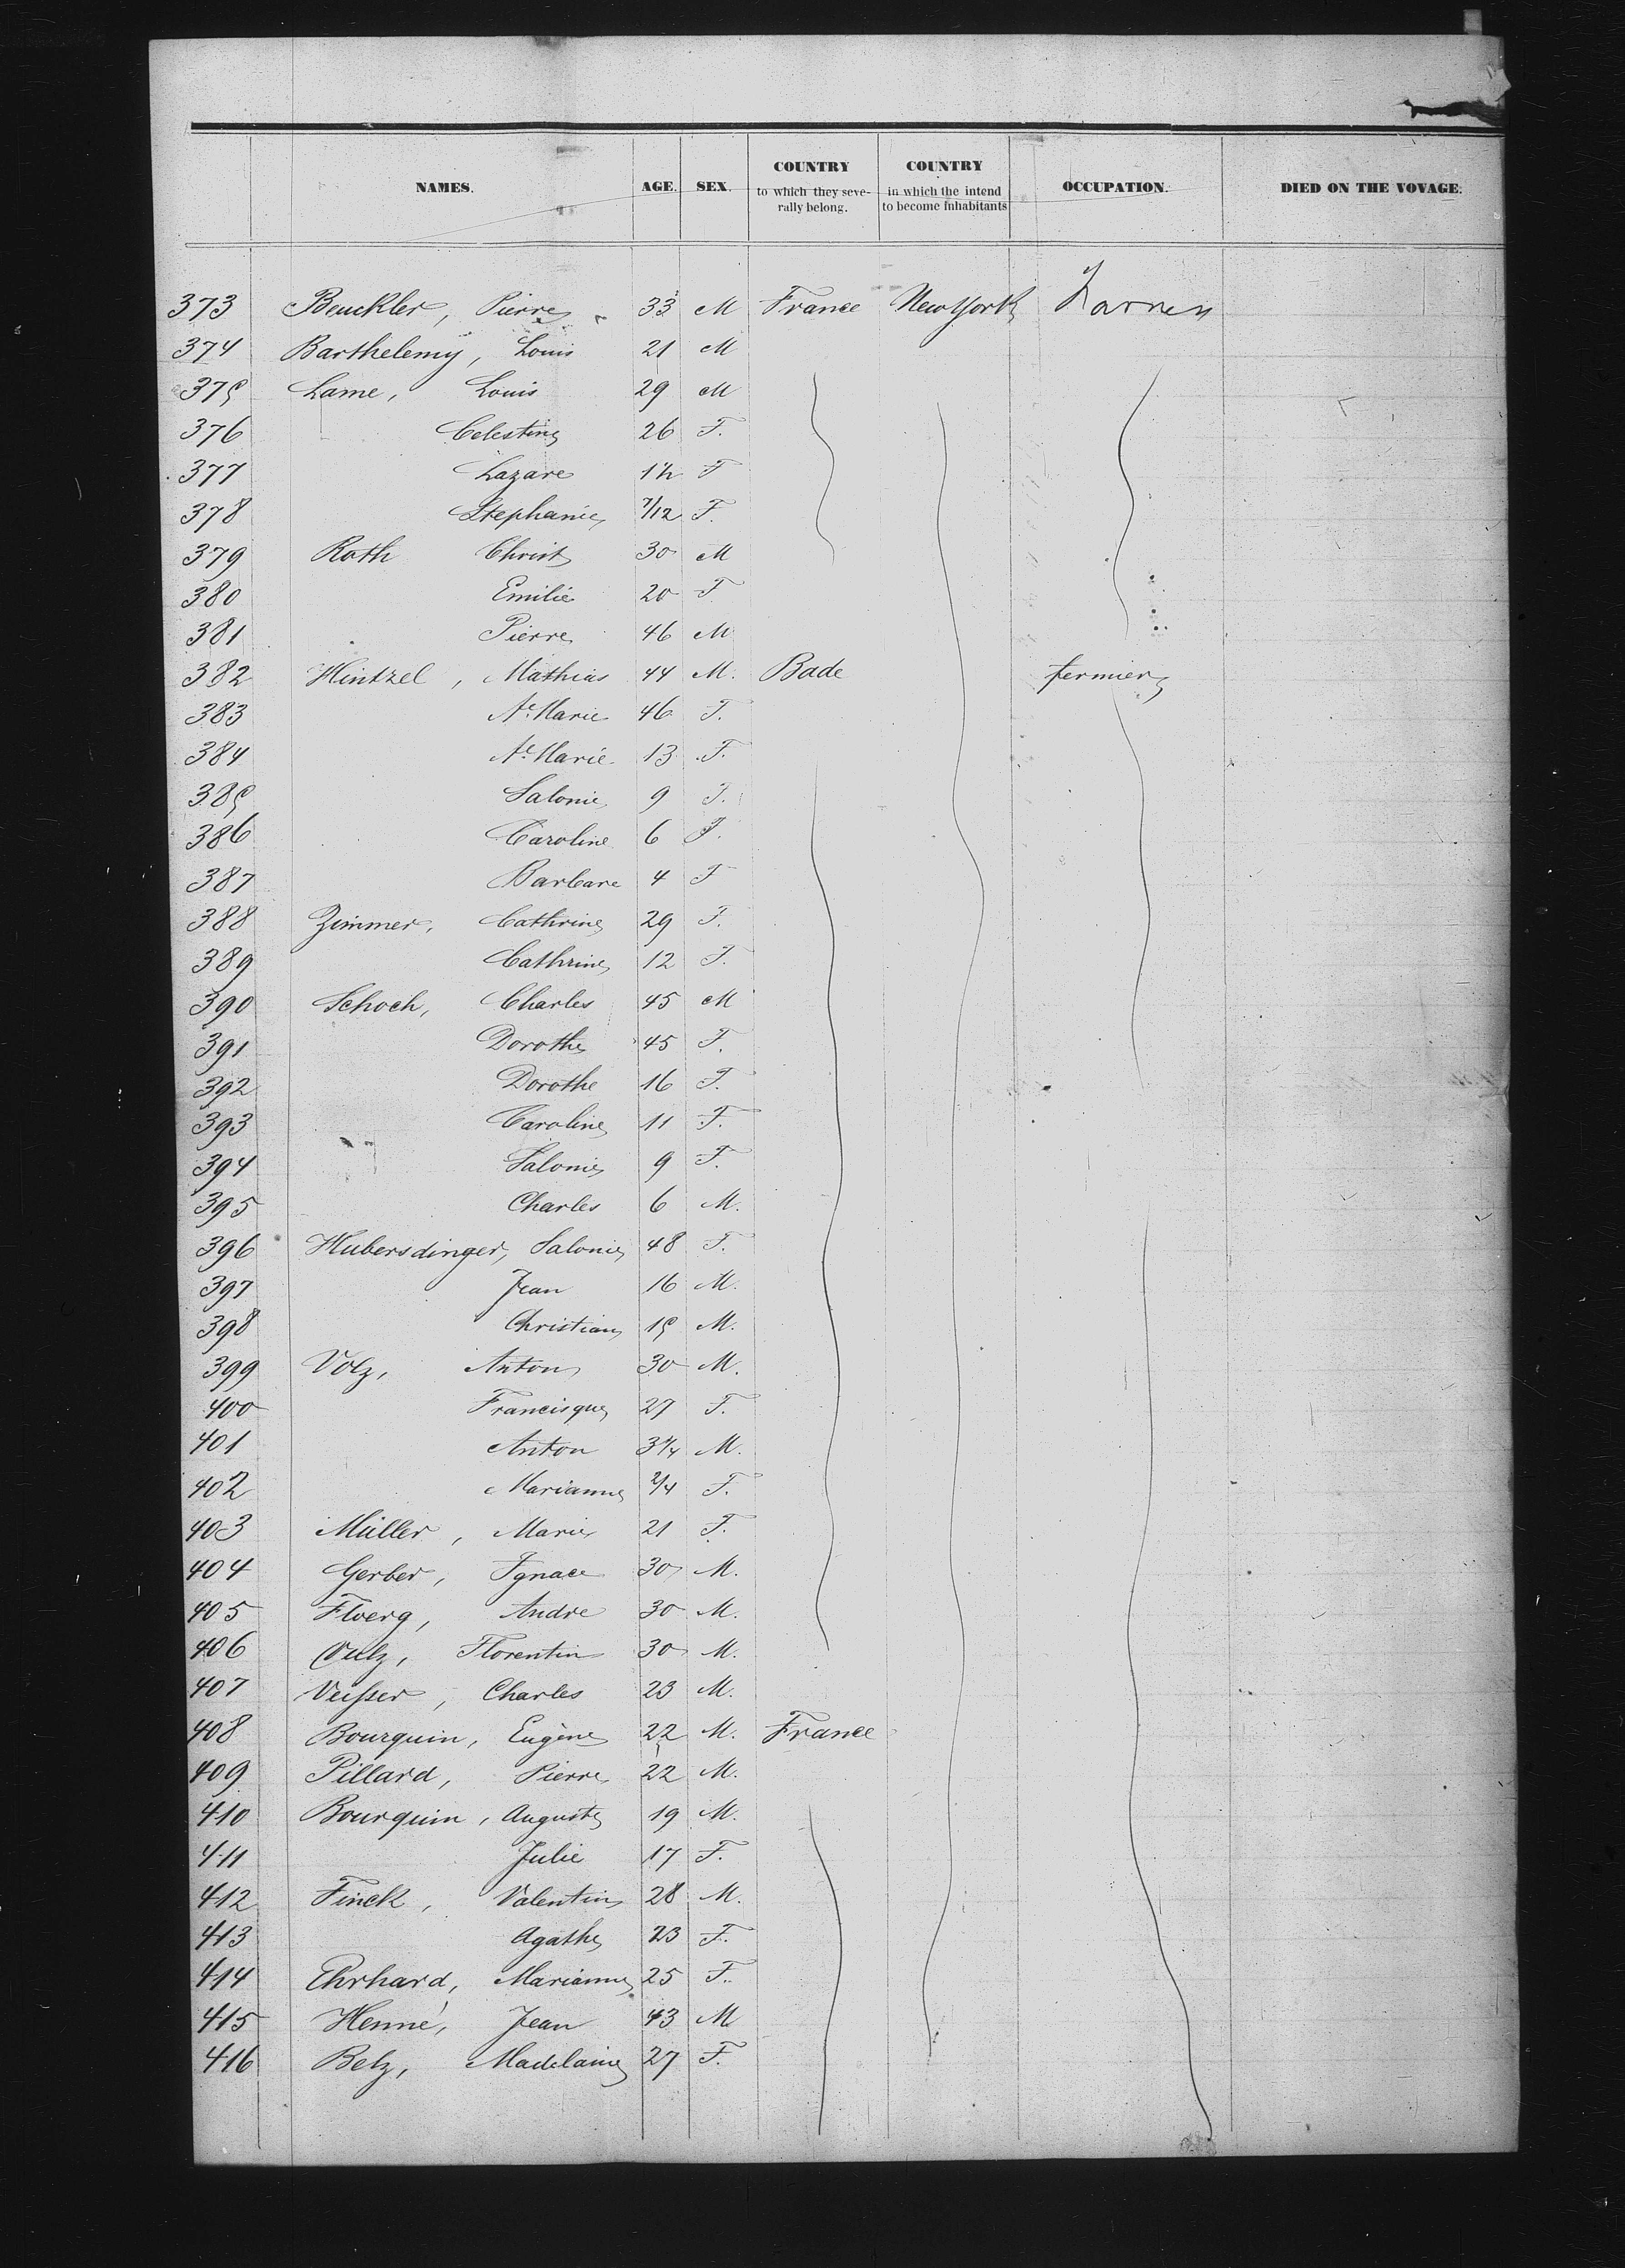 NAMES. AGE. SEX. COUNTRY to which they seve- rally belong. COUNTRY in which the intend to become Inhabitants OCCUPATION. DIED ON THE VOYAGE.
373 Beuckler, Pierre 33 M France New York
374 Barthelemy, Louis 21 M
375 Lame, Louis 29 M
376 Celestine 26 F.
377 Lazare F
378 Stephanie 7/12 F.
379 Roth Christ 30 M
380 Emilie 20 F
381 Pierre 46 M
382 Hintzel, Mathias 44 M. Bade fermier
383 Ae. Marie 46 F.
384 Ae. Marie 13 F.
385 Salomie 9 F.
386 Caroline 6 F.
387 Barbare 4 F
388 Zimmer, Cathrine 29 F.
389 Cathrine 12 F.
390 Schoch, Charles 45 M
391 Dorothe 45 F.
392 Dorothe 16 F.
393 Caroline 11 F.
394 Salomie 9 F.
395 Charles 6 M.
396 Hubersdinger, Salomie 48 F.
397 Jean 16 M.
398 Christian 15 M.
399 Volz, Anton 30 M.
400 Francisque 27 F.
401 Anton M.
402 Marianne 2/4 F.
403 Müller, Marie 21 F.
404 Gerber, Ignace 30 M.
405 Floerg, Andre 30 M.
406 Florentin 30 M.
407 Charles 23 M.
408 Bourquin, Eugène 22 M. France
409 Pillard, Pierre 22 M.
410 Bourquin, Auguste 19 M.
411 Julie 17 F.
412 Finck, Valentin 28 M.
413 Agathe 23 F.
414 Ehrhard, Marianne 25 F.
415 Henné, Jean 43 M
416 Belz, Madelaine 27 F.